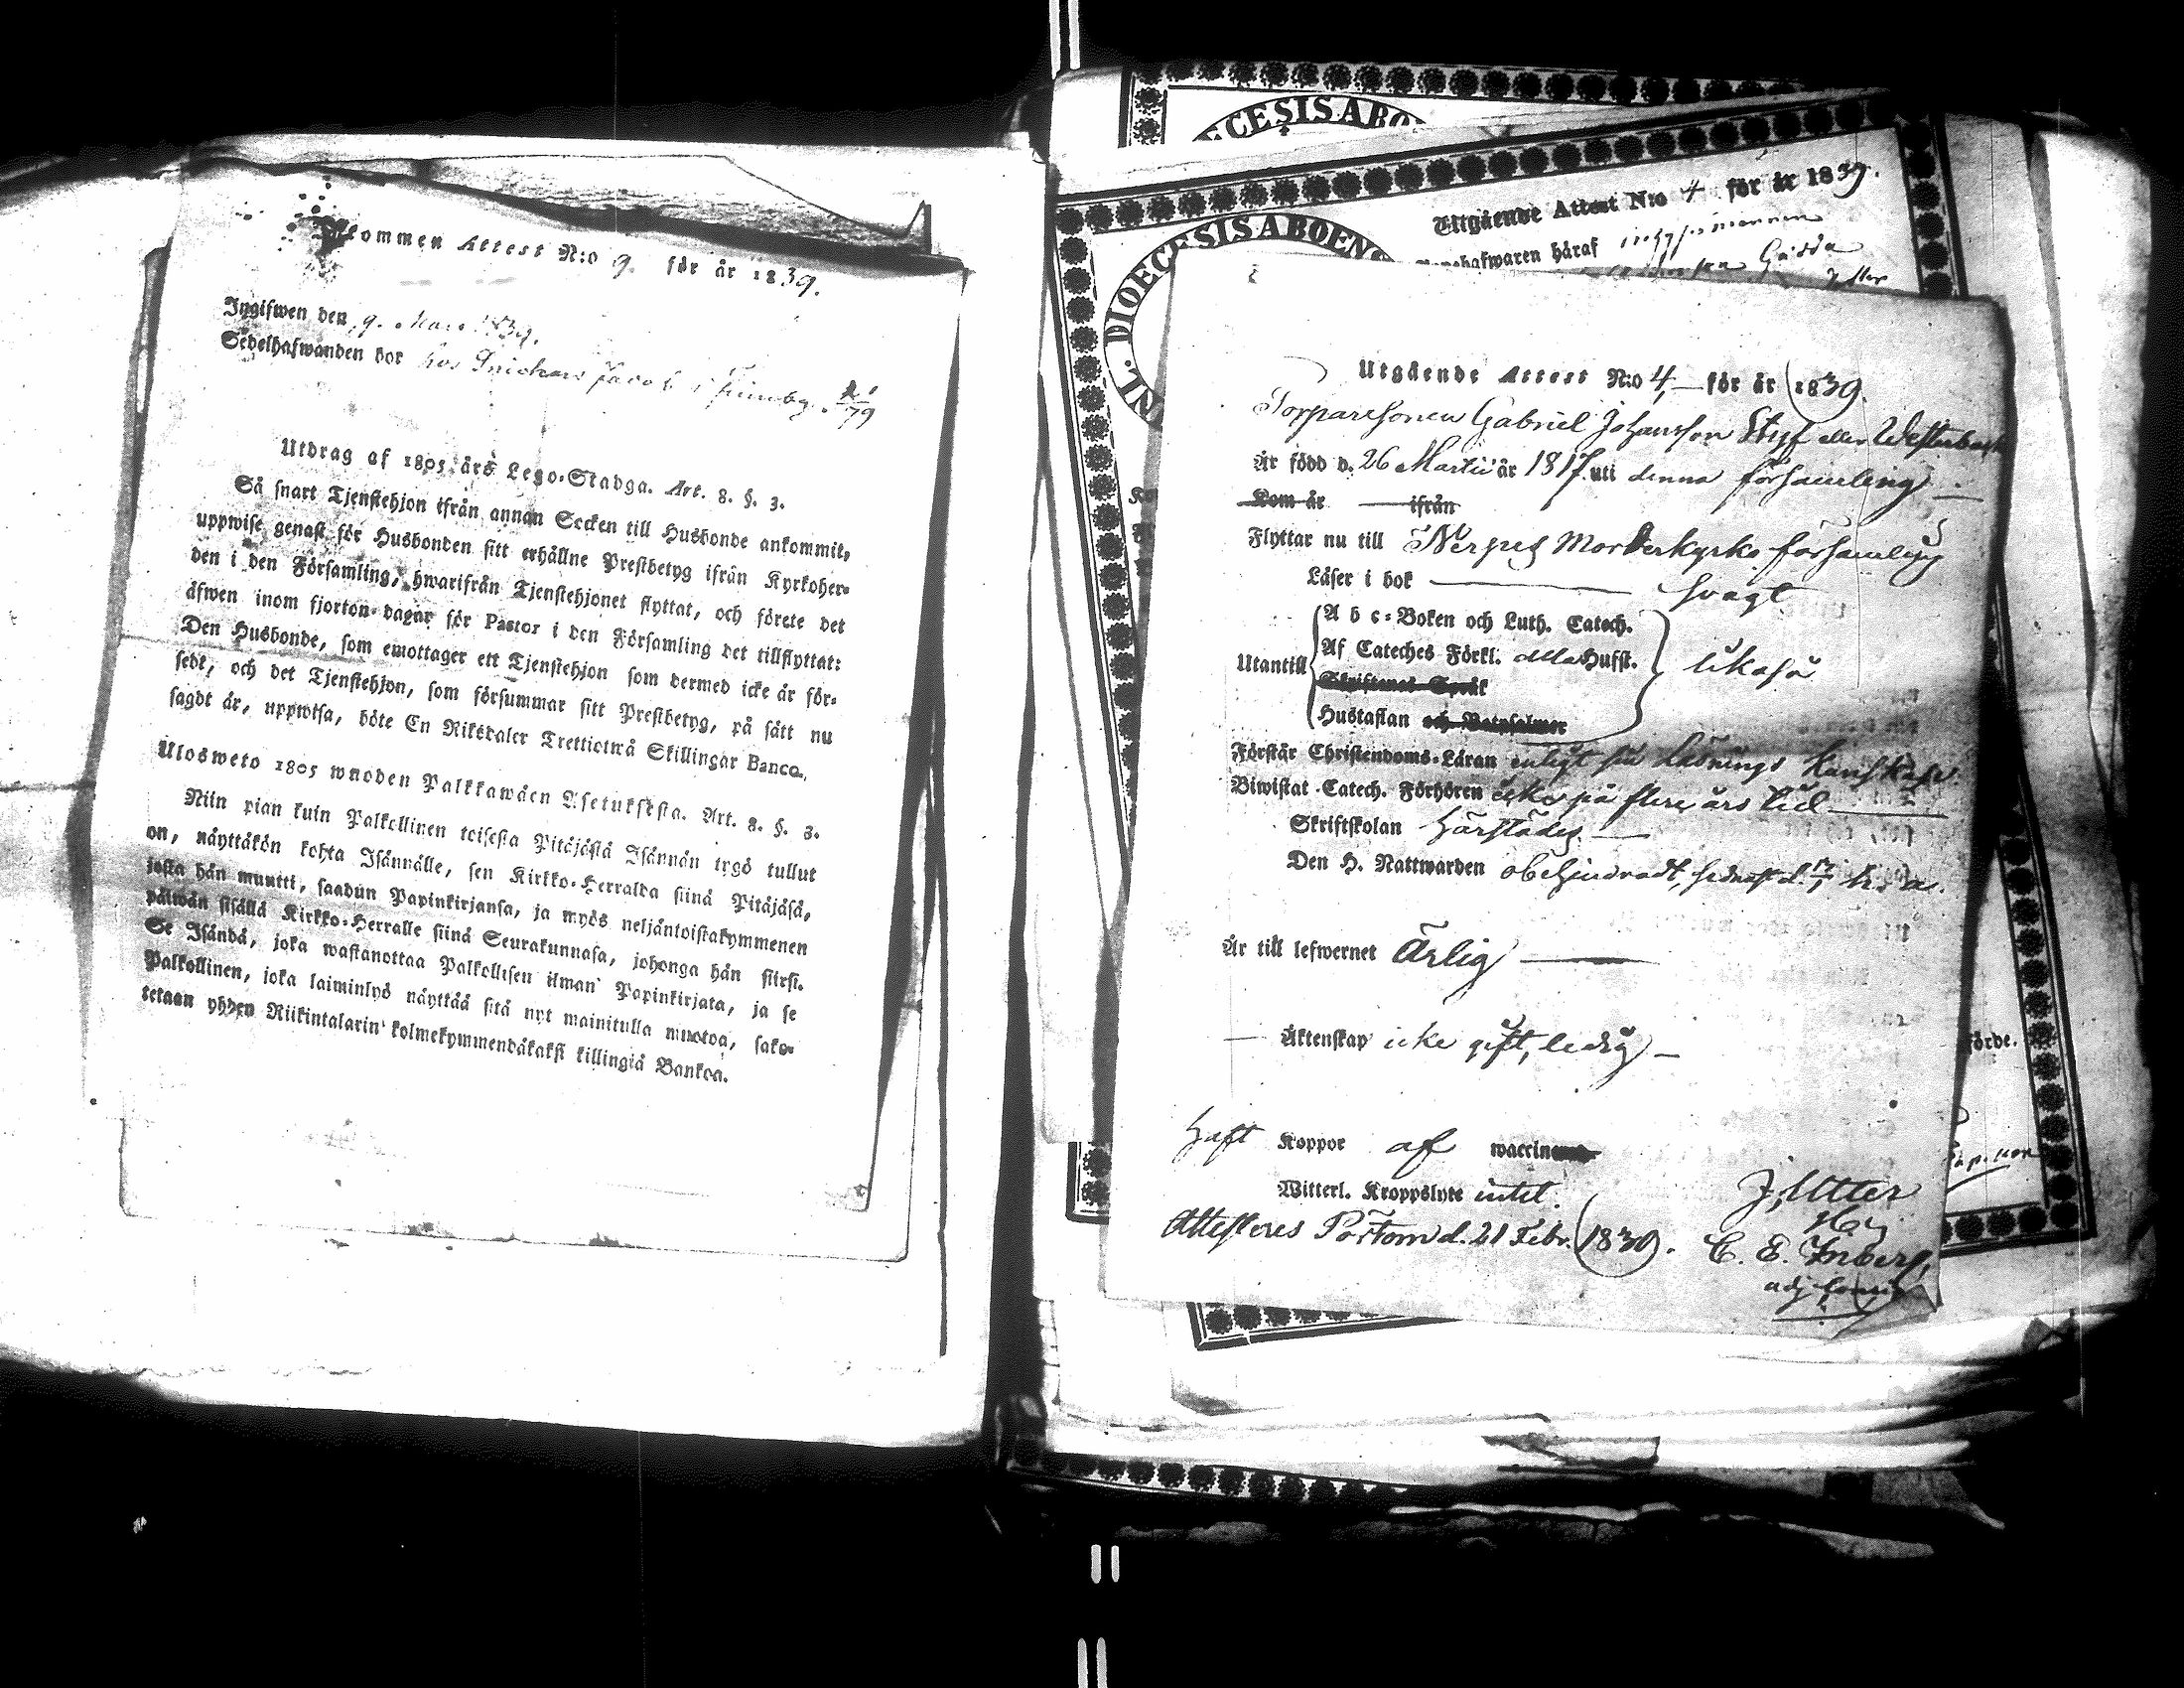 kommen Attest N:o 9. för år 1839.
Ingifwen den 9. Mars 1839.
Sedelhafwanden bor hos Jacob i
Utdrag af 1805 års Lego-Stadga. Art. 8. §. 3.
Så snart Tjenstehjon ifrån annan Socken till Husbonde ankommit,
uppwise genast för Husbonden sitt erhållne Prestbetyg ifrån Kyrkoher-
den i den Församling, hwarifrån Tjenstehjonet flyttat, och förete det
äfwen inom fjorton dagar för Pastor i den Församling det tillflyttat:
Den Husbonde, som emottager ett Tjenstehjon som dermed icke är för-
sedt, och det Tjenstehjon, som försummar sitt Prestbetyg, på sätt nu
sagdt är, uppwisa, böte En Riksdaler Trettiotwå Skillingar Banco.
Ulosweto 1805 wuoden Palkkawäen Asetuksesta. Art. 8. §. 3.
Niin pian kuin Palkollinen toisesta Pitäjästä Isännän tygö tullut
on, näyttäkön kohta Isännälle, sen Kirkko-Herralda siinä Pitäjäsä,
josta hän muutti, saadun Papinkirjansa, ja myös neljäntoistakymmenen
päiwän sisällä Kirkko-Herralle siinä Seurakunnasa, johonga hän siirsi.
Se Isändä, joka wastanottaa Palkollisen ilman Papinkirjata, ja se
Palkollinen, joka laiminlyö näyttää sitä nyt mainitulla muotoa, sako-
tetaan yhden Riikintalarin kolmekymmendäkaksi killingiä Bankoa.
ECESIS ABO
NL. DIOECESIS ABOENS
Utgående Attest N:o 4 för år 1839.
hafwaren häraf
Utgående Attest N:o 4, för år 1839.
Torparesonen Gabriel Johansson Styf eller Westerback
Är född d. 26 Martii år 1817. uti denna församling
Kom år ifrån
Flyttar nu till Nerpes Moderkyrko församling
Läser i bok svagt
Utantill
A b c-Boken och Luth. Catech.
Af Cateches Förkl. alla Husft.
Skriftenes Språk
Hustaflan och Botpsalmer
likaså
Förstår Christendoms-Läran enligt sin läsnings kunskap
Biwistat Catech. Förhören icke på flere års tid
Skriftskolan härstädes
Den H. Nattwarden obehindradt, sednast d.
Är till lefwernet Ärlig
Äktenskap icke gift, ledig
Haft Koppor af waccinerad
Witterl. Kroppslyte intet.
Attesteras Pörtom d. 21 Febr. 1839.
J, Utter
C. E. Inberg,